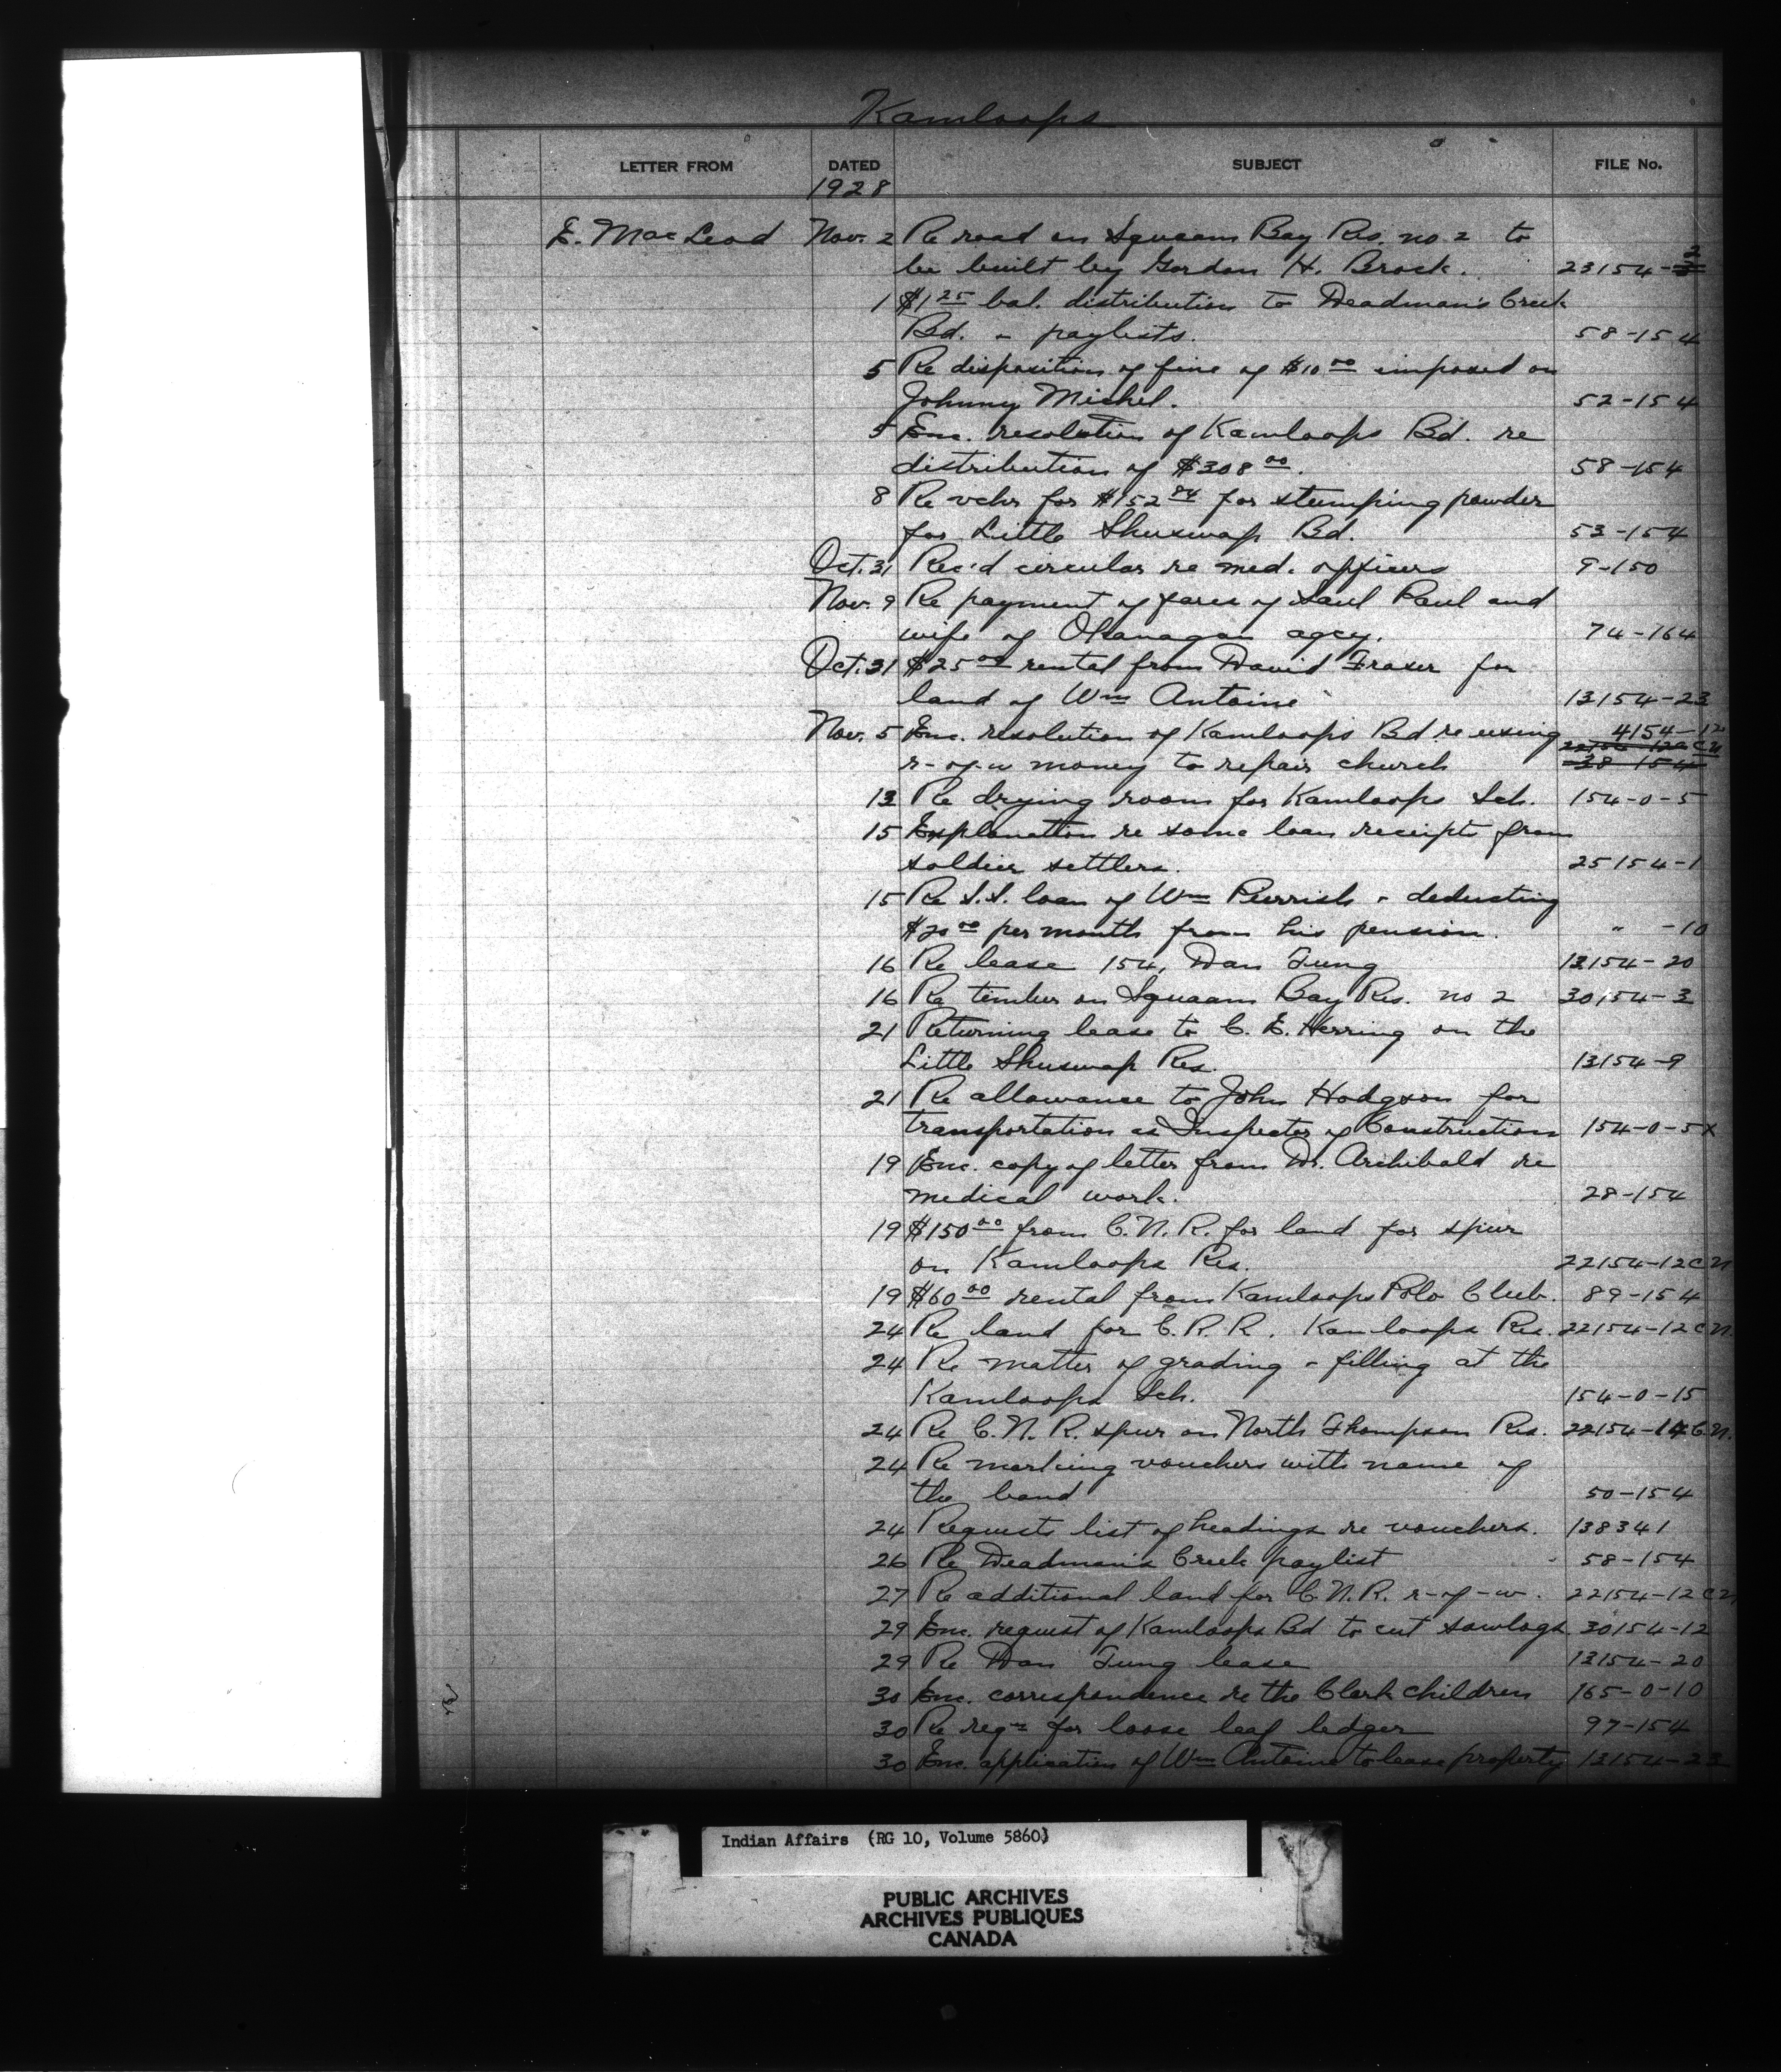 Kamloops
LETTER FROM DATED SUBJECT FILE No.
1928
E. MacLeod Nov. 2 Re road on Squaam Bay Res. no 2 to
be built by Gordon H. Brock. 23154-2
1 $1.25 bal. distribution to Deadman's Creek
Bd. - paylists. 58-154
5 Re disposition of fine of $10.00 imposed on
Johnny Michel. 52-154
5 Enc. resolution of Kamloops Bd. re
distribution of $308.00. 58-154
8 Re vchr for $152.84 for stumping powder
for Little Shuswap Bd. 53-154
Oct. 31 Rec'd circular re med. officers 9-150
Nov. 9 Re payment of fares of Saul Paul and
wife of Okanagan agcy. 74-164
Oct. 31 $25.00 rental from David Fraser for
land of Wm Antoine 13154-23
Nov. 5 Enc. resolution of Kamloops Bd re using 4154-12
r-of-w money to repair church 38-154
13 Re drying room for Kamloops Sch. 154-0-5
15 Explanation re some loan receipts from
soldier settlers. 25154-1
15 Re S.S. loan of Wm - deducting
$20.00 per month from his pension. " -10
16 Re lease 154, Wan Tung 13154-20
16 Re timber on Squaam Bay Res. no 2 30154-3
21 Returning lease to C. E. Herring on the
Little Shuswap Res. 13154-9
21 Re allowance to John Hodgson for
transportation as Inspector of Construction 154-0-5X
19 Enc. copy of letter from Dr. Archibald re
medical work. 28-154
19 $150.00 from C.N.R. for land for spur
on Kamloops Res. 22154-12CN
19 $60.00 rental from Kamloops Polo Club. 89-154
24 Re land for C.R.R. Kamloops Res. 22154-12CN.
24 Re matter of grading - filling at the
Kamloops Sch. 154-0-15
24 Re C.N.R. spur on North Thompson Res. 22154-14C.N.
24 Re marking vouchers with name of
the band 50-154
24 Requests list of headings re vouchers. 138341
26 Re Deadman's Creek paylist 58-154
27 Re additional land for C.N.R. r-of-w. 22154-12CN
29 Enc. request of Kamloops Bd to cut sawlogs 30154-12
29 Re Wan Tung lease 13154-20
30 Enc. correspondence re the Clark children 165-0-10
30 Re reqn for loose leaf ledger 97-154
30 Enc. application of Wm Antoine to lease property 13154-23
Indian Affairs (RG 10, Volume 5860)
PUBLIC ARCHIVES
ARCHIVES PUBLIQUES
CANADA